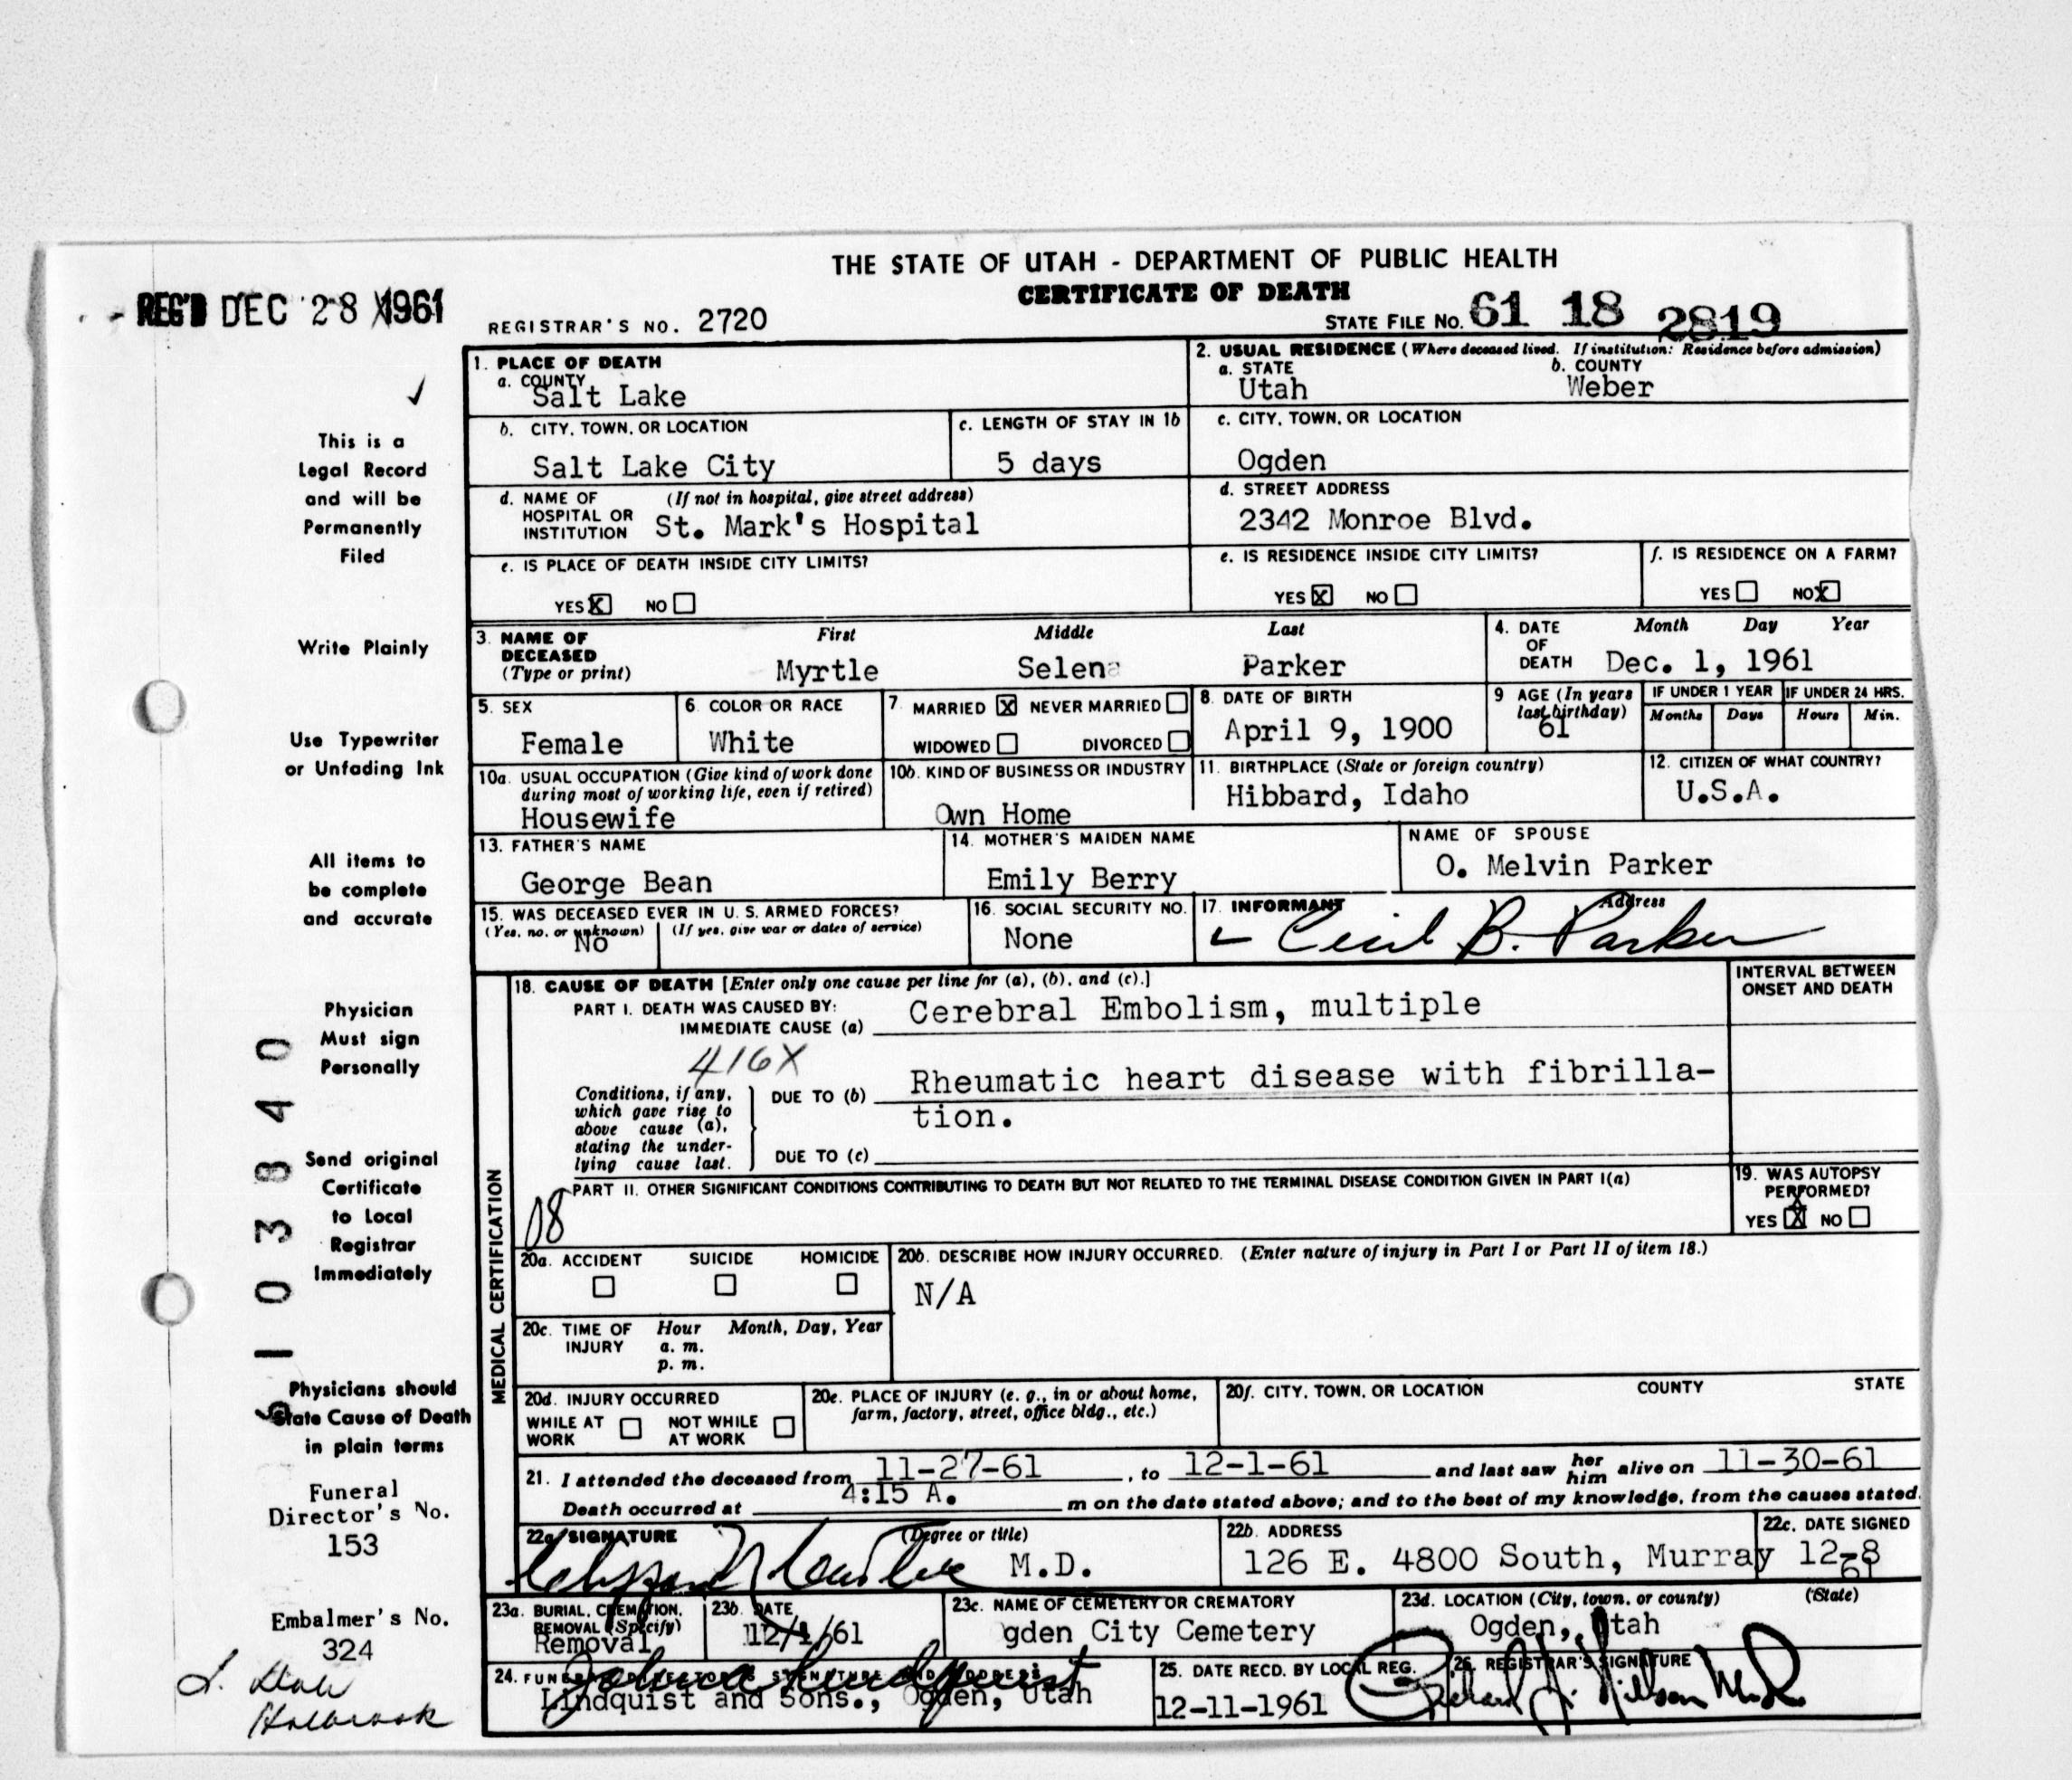 THE STATE OF UTAH - DEPARTMENT OF PUBLIC HEALTH
CERTIFICATE OF DEATH
REG'D DEC 28 1961
REGISTRAR'S NO. 2720
STATE FILE NO. 61 18 2819
1. PLACE OF DEATH
a. COUNTY
Salt Lake
2. USUAL RESIDENCE (Where deceased lived. If institution: Residence before admission)
a. STATE
Utah
b. COUNTY
Weber
b. CITY, TOWN, OR LOCATION
Salt Lake City
c. LENGTH OF STAY IN 1b
5 days
c. CITY, TOWN, OR LOCATION
Ogden
d. NAME OF (If not in hospital, give street address)
HOSPITAL OR
INSTITUTION St. Mark's Hospital
d. STREET ADDRESS
2342 Monroe Blvd.
e. IS PLACE OF DEATH INSIDE CITY LIMITS?
YES X NO
e. IS RESIDENCE INSIDE CITY LIMITS?
YES X NO
f. IS RESIDENCE ON A FARM?
YES NO X
3. NAME OF
DECEASED
(Type or print)
First Middle Last
Myrtle Selena Parker
4. DATE
OF
DEATH
Month Day Year
Dec. 1, 1961
5. SEX
Female
6. COLOR OR RACE
White
7. MARRIED X NEVER MARRIED
WIDOWED DIVORCED
8. DATE OF BIRTH
April 9, 1900
9 AGE (In years
last birthday)
61
IF UNDER 1 YEAR
Months Days
IF UNDER 24 HRS.
Hours Min.
10a. USUAL OCCUPATION (Give kind of work done
during most of working life, even if retired)
Housewife
10b. KIND OF BUSINESS OR INDUSTRY
Own Home
11. BIRTHPLACE (State or foreign country)
Hibbard, Idaho
12. CITIZEN OF WHAT COUNTRY?
U.S.A.
13. FATHER'S NAME
George Bean
14. MOTHER'S MAIDEN NAME
Emily Berry
NAME OF SPOUSE
O. Melvin Parker
15. WAS DECEASED EVER IN U. S. ARMED FORCES?
(Yes, no, or unknown) (If yes, give war or dates of service)
No
16. SOCIAL SECURITY NO.
None
17. INFORMANT Address
Cecil B. Parker
MEDICAL CERTIFICATION
18. CAUSE OF DEATH [Enter only one cause per line for (a), (b), and (c).]
INTERVAL BETWEEN
ONSET AND DEATH
PART I. DEATH WAS CAUSED BY:
IMMEDIATE CAUSE (a) Cerebral Embolism, multiple
416X
Conditions, if any,
which gave rise to
above cause (a),
stating the under-
lying cause last.
DUE TO (b) Rheumatic heart disease with fibrilla-
tion.
DUE TO (c)
PART II. OTHER SIGNIFICANT CONDITIONS CONTRIBUTING TO DEATH BUT NOT RELATED TO THE TERMINAL DISEASE CONDITION GIVEN IN PART I(a)
08
19. WAS AUTOPSY
PERFORMED?
YES X NO
20a. ACCIDENT SUICIDE HOMICIDE
20b. DESCRIBE HOW INJURY OCCURRED. (Enter nature of injury in Part I or Part II of item 18.)
N/A
20c. TIME OF
INJURY
Hour Month, Day, Year
a. m.
p. m.
20d. INJURY OCCURRED
WHILE AT
WORK
NOT WHILE
AT WORK
20e. PLACE OF INJURY (e. g., in or about home,
farm, factory, street, office bldg., etc.)
20f. CITY, TOWN, OR LOCATION COUNTY STATE
21. I attended the deceased from 11-27-61, to 12-1-61 and last saw her him alive on 11-30-61
Death occurred at 4:15 A. m on the date stated above; and to the best of my knowledge, from the causes stated.
22a. SIGNATURE (Degree or title)
M.D.
22b. ADDRESS
126 E. 4800 South, Murray
22c. DATE SIGNED
12-8
61
23a. BURIAL, CREMATION,
REMOVAL (Specify)
Removal
23b. DATE
12/1/61
23c. NAME OF CEMETERY OR CREMATORY
gden City Cemetery
23d. LOCATION (City, town, or county) (State)
Ogden, Utah
24. FUNERAL DIRECTOR'S SIGNATURE AND ADDRESS
Lindquist and Sons., Ogden, Utah
25. DATE RECD. BY LOCAL REG.
12-11-1961
26. REGISTRAR'S SIGNATURE
This is a
Legal Record
and will be
Permanently
Filed
Write Plainly
Use Typewriter
or Unfading Ink
All items to
be complete
and accurate
Physician
Must sign
Personally
Send original
Certificate
to Local
Registrar
Immediately
Physicians should
State Cause of Death
in plain terms
Funeral
Director's No.
153
Embalmer's No.
324